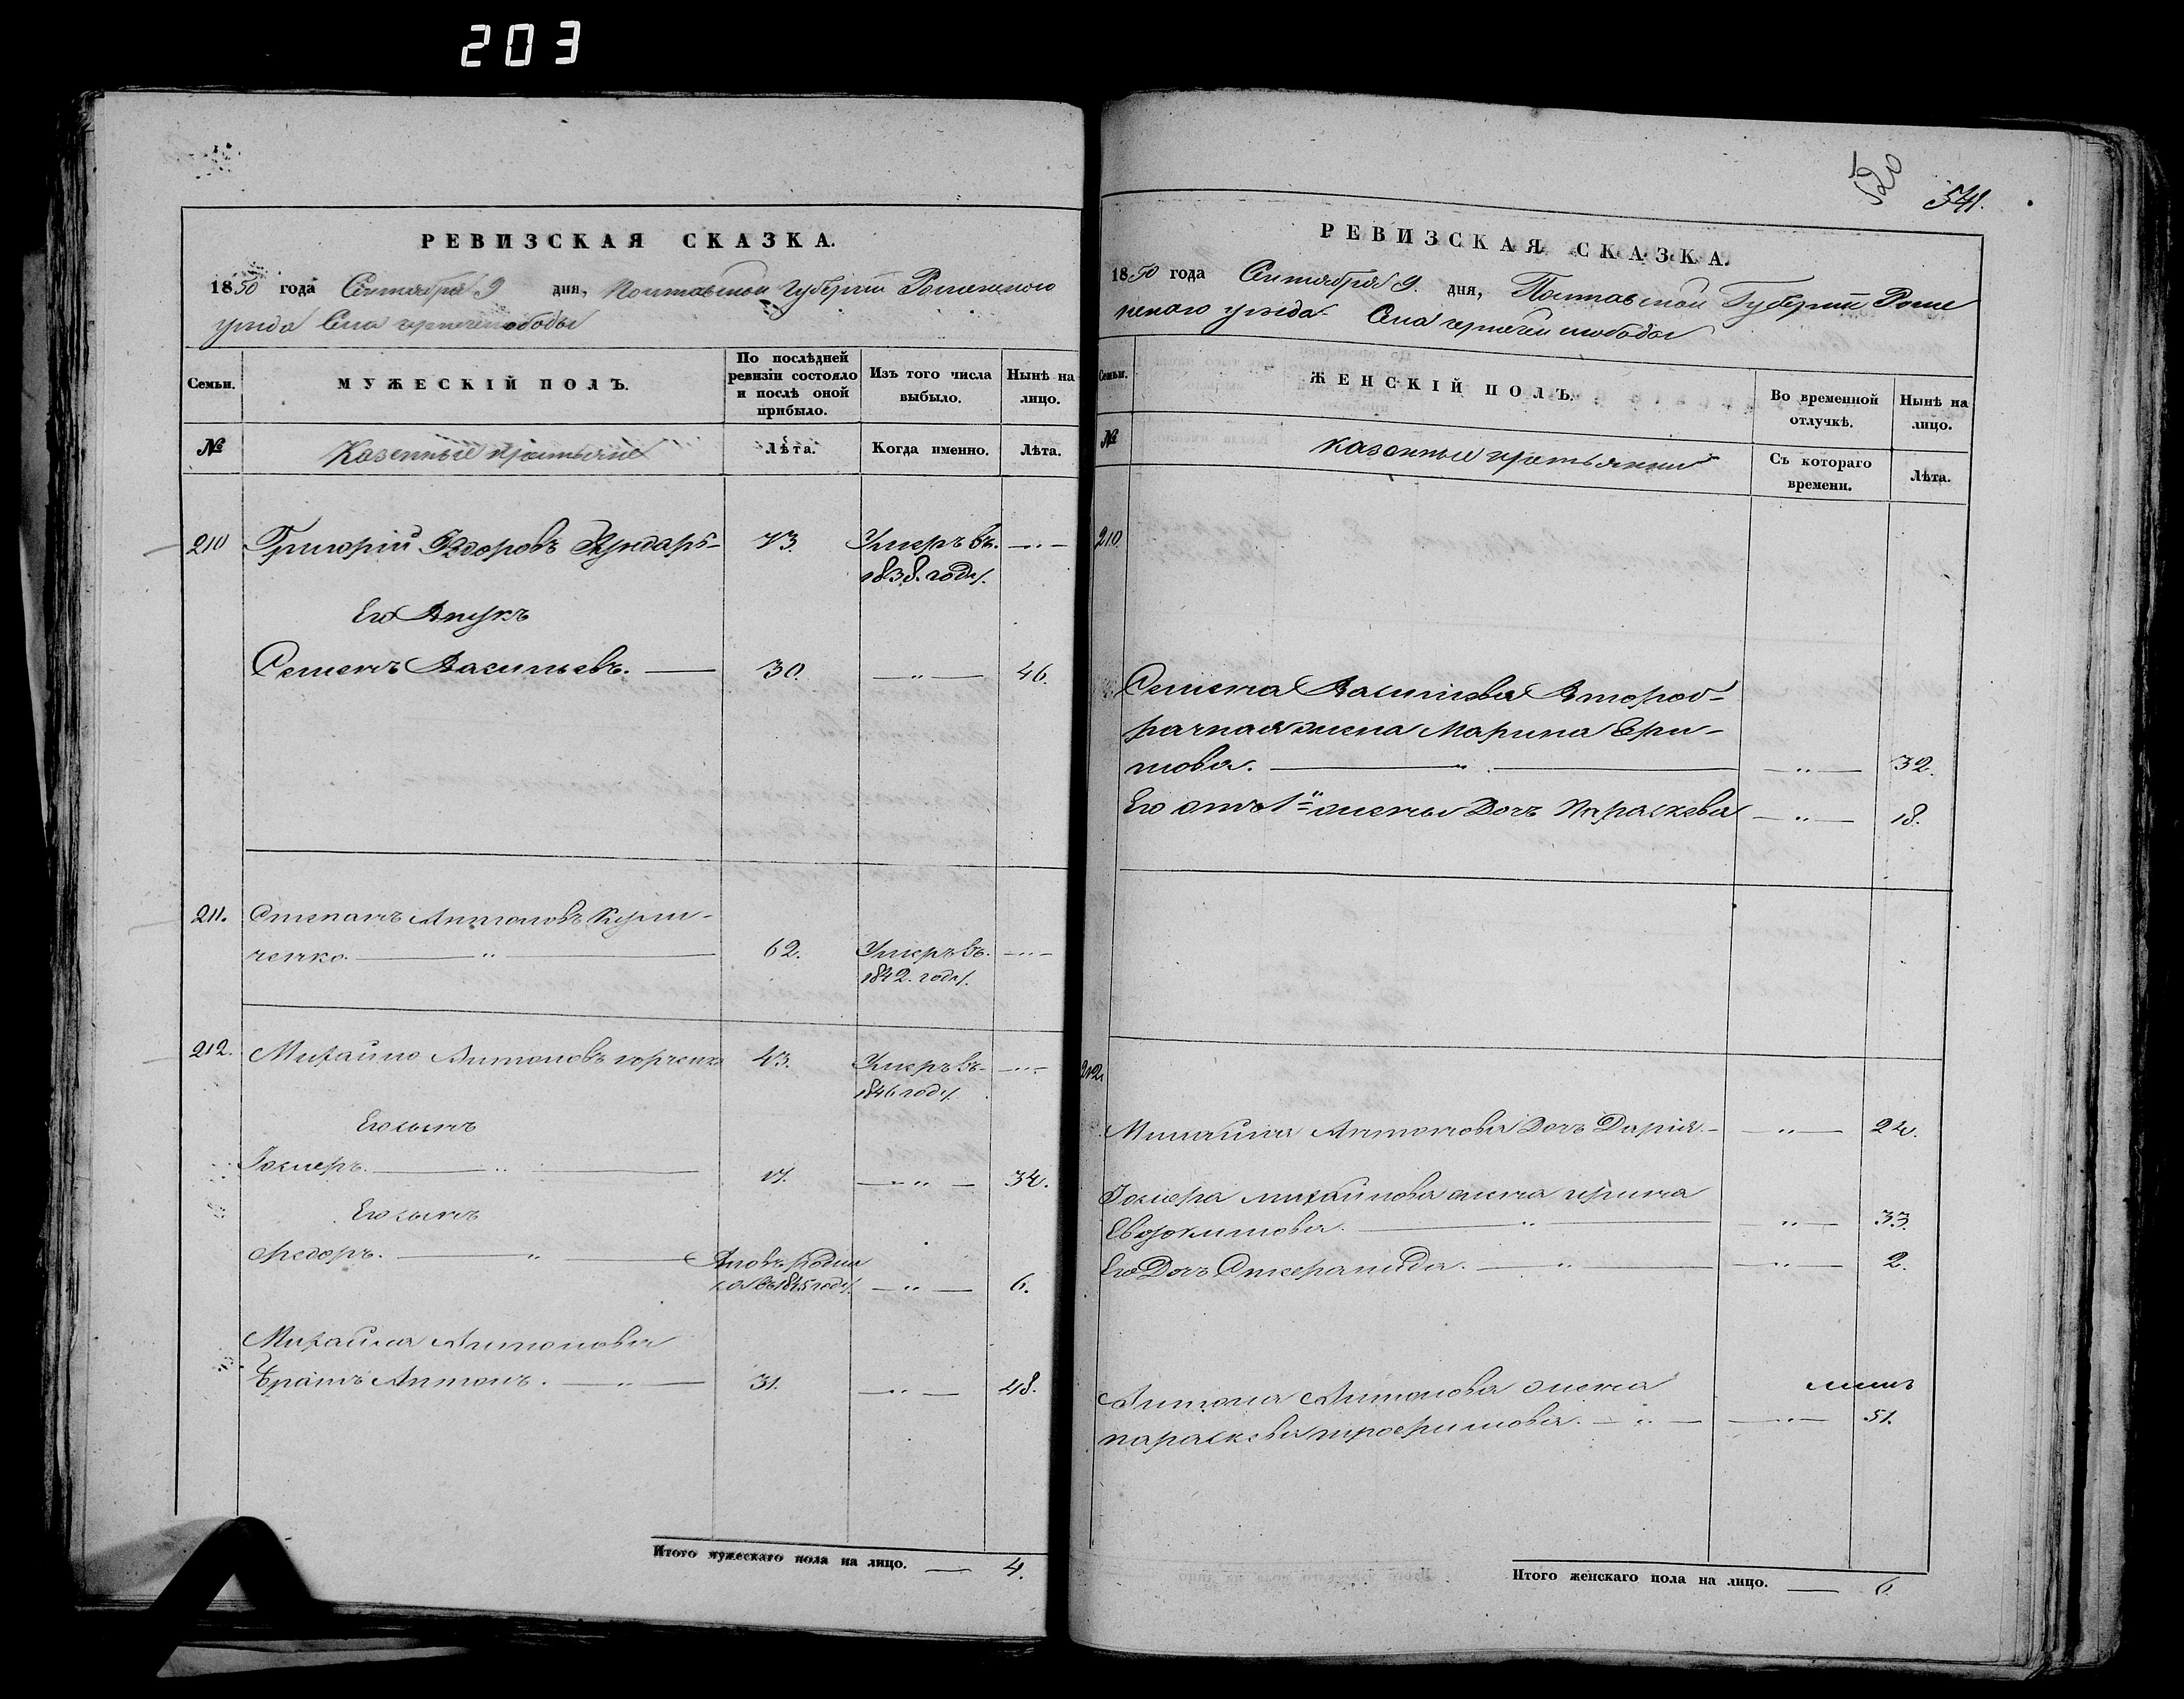 203
РЕВИЗСКАЯ СКАЗКА.
1850 года Сентября 9 дня, Полтавской Губерніи Роменского
уезда Села слободы
Семьи.
МУЖЕСКІЙ ПОЛЪ.
По послѣдней
ревизіи состояло
и послѣ оной
прибыло.
Изъ того числа
выбыло.
Нынѣ на
лицо.
№
Казенные крестьяне
Лѣта.
Когда именно.
Лѣта.
210 Григорій Федоровъ 73. Умеръ въ
1838. году.
Его Внукъ
Семенъ Васильевъ. 30. 46.
211. Степанъ Антоновъ
ченко. 62. Умеръ въ
1842. году.
212. Михайло Антоновъ 43. Умеръ въ
1846 году.
Его сынъ
17. 34.
Его сынъ
Федоръ. Вновь родил
ся въ 1845 году. 6.
Михайла Антонова
братъ Антонъ. 31. 48.
Итого мужескаго пола на лицо. 4.
520
541.
РЕВИЗСКАЯ СКАЗКА.
1850 года Сентября 9. дня, Полтавской Губерніи Роме
нскаго уезда Села слободы
Семьи.
ЖЕНСКІЙ ПОЛЪ.
Во временной
отлучкѣ.
Нынѣ на
лицо.
№
казенные крестьянки
Съ котораго
времени.
Лѣта.
210.
Семена Васильева Второб-
рачная жена Марина
32.
Его отъ 1й жены Дочь Параскева 18.
212.
Михайла Антонова Дочь Дарія 24.
Михайлова жена Ирина
Евдокимова. 33.
Его Дочь Степанида. 2.
Антона Антонова жена
параскева трофимова. 51.
Итого женскаго пола на лицо. 6.